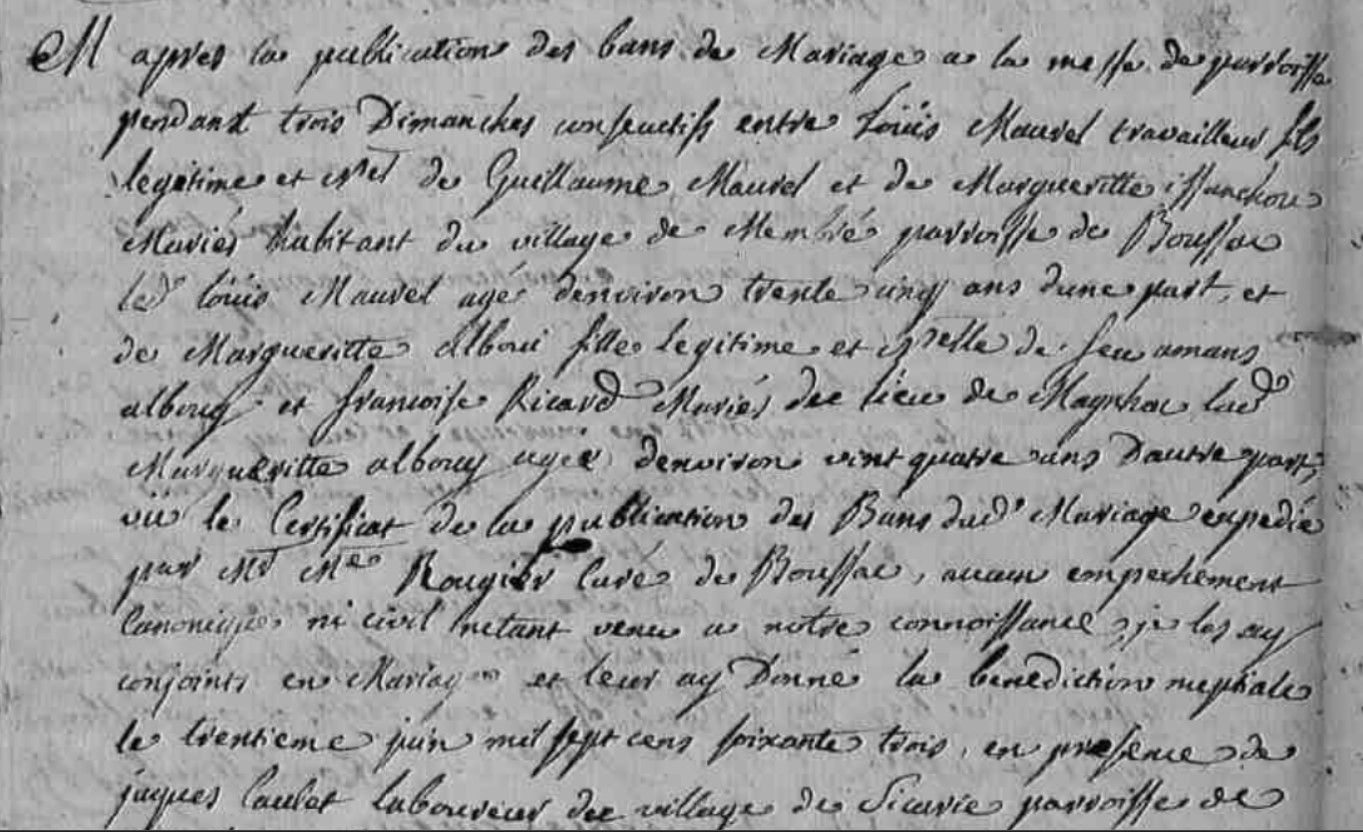 M apres la publication des bans de Mariage a la messe de parroisse
pendant trois Dimanches consecutifs entre Loüis Mauvel travailleur fils
legitime et nel de Guillaume Mauvel et de Margueritte
Mariés habitant du village de Membré parroisse de Boussac
led Loüis Mauvel agé denviron trente cinq ans dune part, et
de Margueritte alboui fille legitime et nelle de feu amans
albouy et francoise Ricard Mariés du lieu de Maynhac lad
Margueritte albouy agée denviron vint quatre ans Dautre part,
vu le Certificat de la publication des Bans dud Mariage expedié
par Mr Me Rougier Curé de Boussac, aucun empechement
Canonique ni civil netant venu a notre connoissance, je les ay
conjoints en Mariage et leur ay Donné la benediction nuptiale
le trentieme juin mil sept cens soixante trois, en presence de
jaques Caulet laboureur du village de Sicarie parroisse de